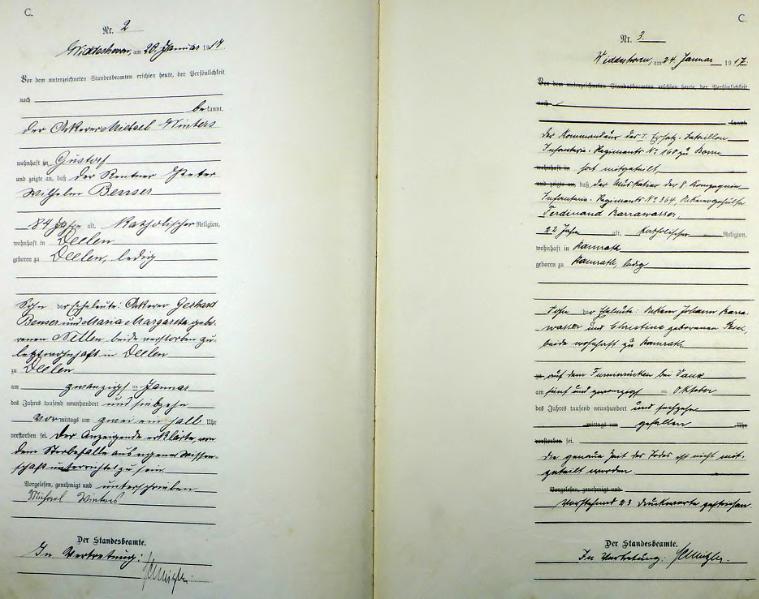 C.
Nr. 2
am 20. Januar 1917
Vor dem unterzeichneten Standesbeamten erschien heute, der Persönlichkeit
nach
bekannt,
der Ackerer Michael Winters
wohnhaft in Gustorf
und zeigte an, daß der Rentner Peter
Wilhelm Benser
84 Jahre alt, Katholischer Religion,
wohnhaft in Deelen
geboren zu Deelen, ledig
Sohn der Eheleute: Ackerer Gerhard
Benser und Maria Margareta gebo-
renen beide verstorben zu-
letzt wohnhaft in Deelen
zu Deelen
am zwanzigsten Januar
des Jahres tausend neunhundert und siebzehn
Vormittags um zwei ein halb Uhr
verstorben sei. Der Anzeigende erklärte, von
dem Sterbefalle aus eigener Wissen-
schaft unterrichtet zu sein
Vorgelesen, genehmigt und unterschrieben
Michael Winters
Der Standesbeamte.
In Vertretung:
C.
Nr. 3
am 24. Januar 1917
Vor dem unterzeichneten Standesbeamten erschien heute, der Persönlichkeit
nach
bekannt,
Der Kommandeur des I. Ersatz-Bataillon
Infanterie-Regiments Nr. 160 zu Bonn
wohnhaft in hat mitgeteilt,
und zeigte an, daß der Musketier der 8. Kompagnie
Infanterie-Regiments Nr. 364, Ackergehülfe
Ferdinand Karrawasser,
22 Jahre alt, Katholischer Religion,
wohnhaft in Ramrath
geboren zu Ramrath, ledig
Sohn der Eheleute: Ackerer Johann Karra-
wasser und Christina geborenen
beide wohnhaft zu Ramrath
zu auf dem bei Vaux
am fünf und zwanzigsten Oktober
des Jahres tausend neunhundert und sechzehn
mittags um gefallen Uhr
verstorben sei.
Die genaue Zeit des Todes ist nicht mit-
geteilt worden
Vorgelesen, genehmigt und
Vorstehend 23 Druckworte gestrichen
Der Standesbeamte.
In Vertretung: